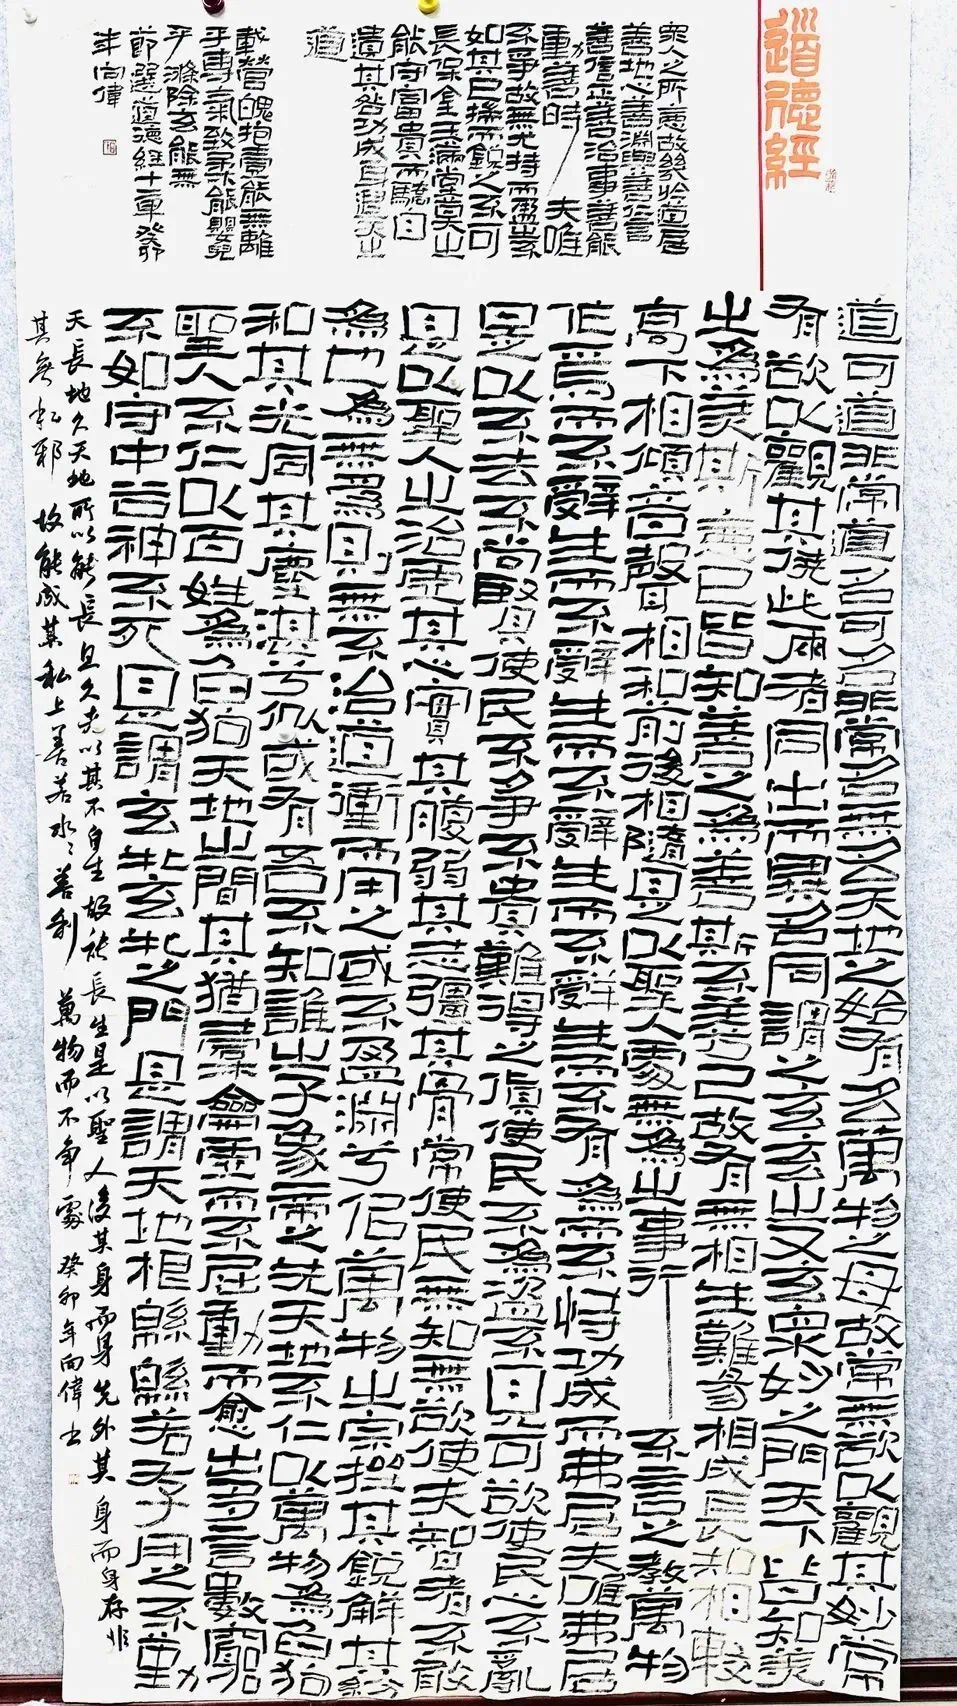 道德經
道可道非常道名可名非常名無名天地之始有名萬物之母故常無欲以觀其妙常
有欲以觀其徼此兩者同出而異名同謂之玄玄之又玄眾妙之門天下皆知美
之為美斯惡已皆知善之為善斯不善已故有無相生難易相成長短相較
高下相傾音聲相和前後相隨是以聖人處無為之事行不言之教萬物
作焉而不辭生而不辭生而不辭生而不辭生而不有為而不恃功成而弗居夫唯弗居
是以不去不尚賢使民不爭不貴難得之貨使民不為盜不見可欲使民心不亂
是以聖人之治虛其心實其腹弱其志彊其骨常使民無知無欲使夫智者不敢
為也為無為則無不治道衝而用之或不盈淵兮似萬物之宗挫其銳解其紛
和其光同其塵湛兮似或有吾不知誰之子象帝之先天地不仁以萬物為芻狗
聖人不仁以百姓為芻狗天地之間其猶橐籥虛而不屈動而愈出多言數窮
不如守中谷神不死是謂玄牝玄牝之門是謂天地根綿綿若存用之不勤
天長地久天地所以能長且久者以其不自生故能長生是以聖人後其身而身先外其身而身存非
其無私耶故能成其私上善若水水善利萬物而不爭處癸卯年向偉書
眾人之所惡故幾於道居
善地心善淵與善仁言
善信正善治事善能
動善時夫唯
不爭故無尤持而盈之不
如其已揣而銳之不可
長保金玉滿堂莫之
能守富貴而驕自
遺其咎功成身退天之
道
載營魄抱壹能無離
乎專氣致柔能嬰兒
乎滌除玄能無
節選道德經十章癸卯
年向偉